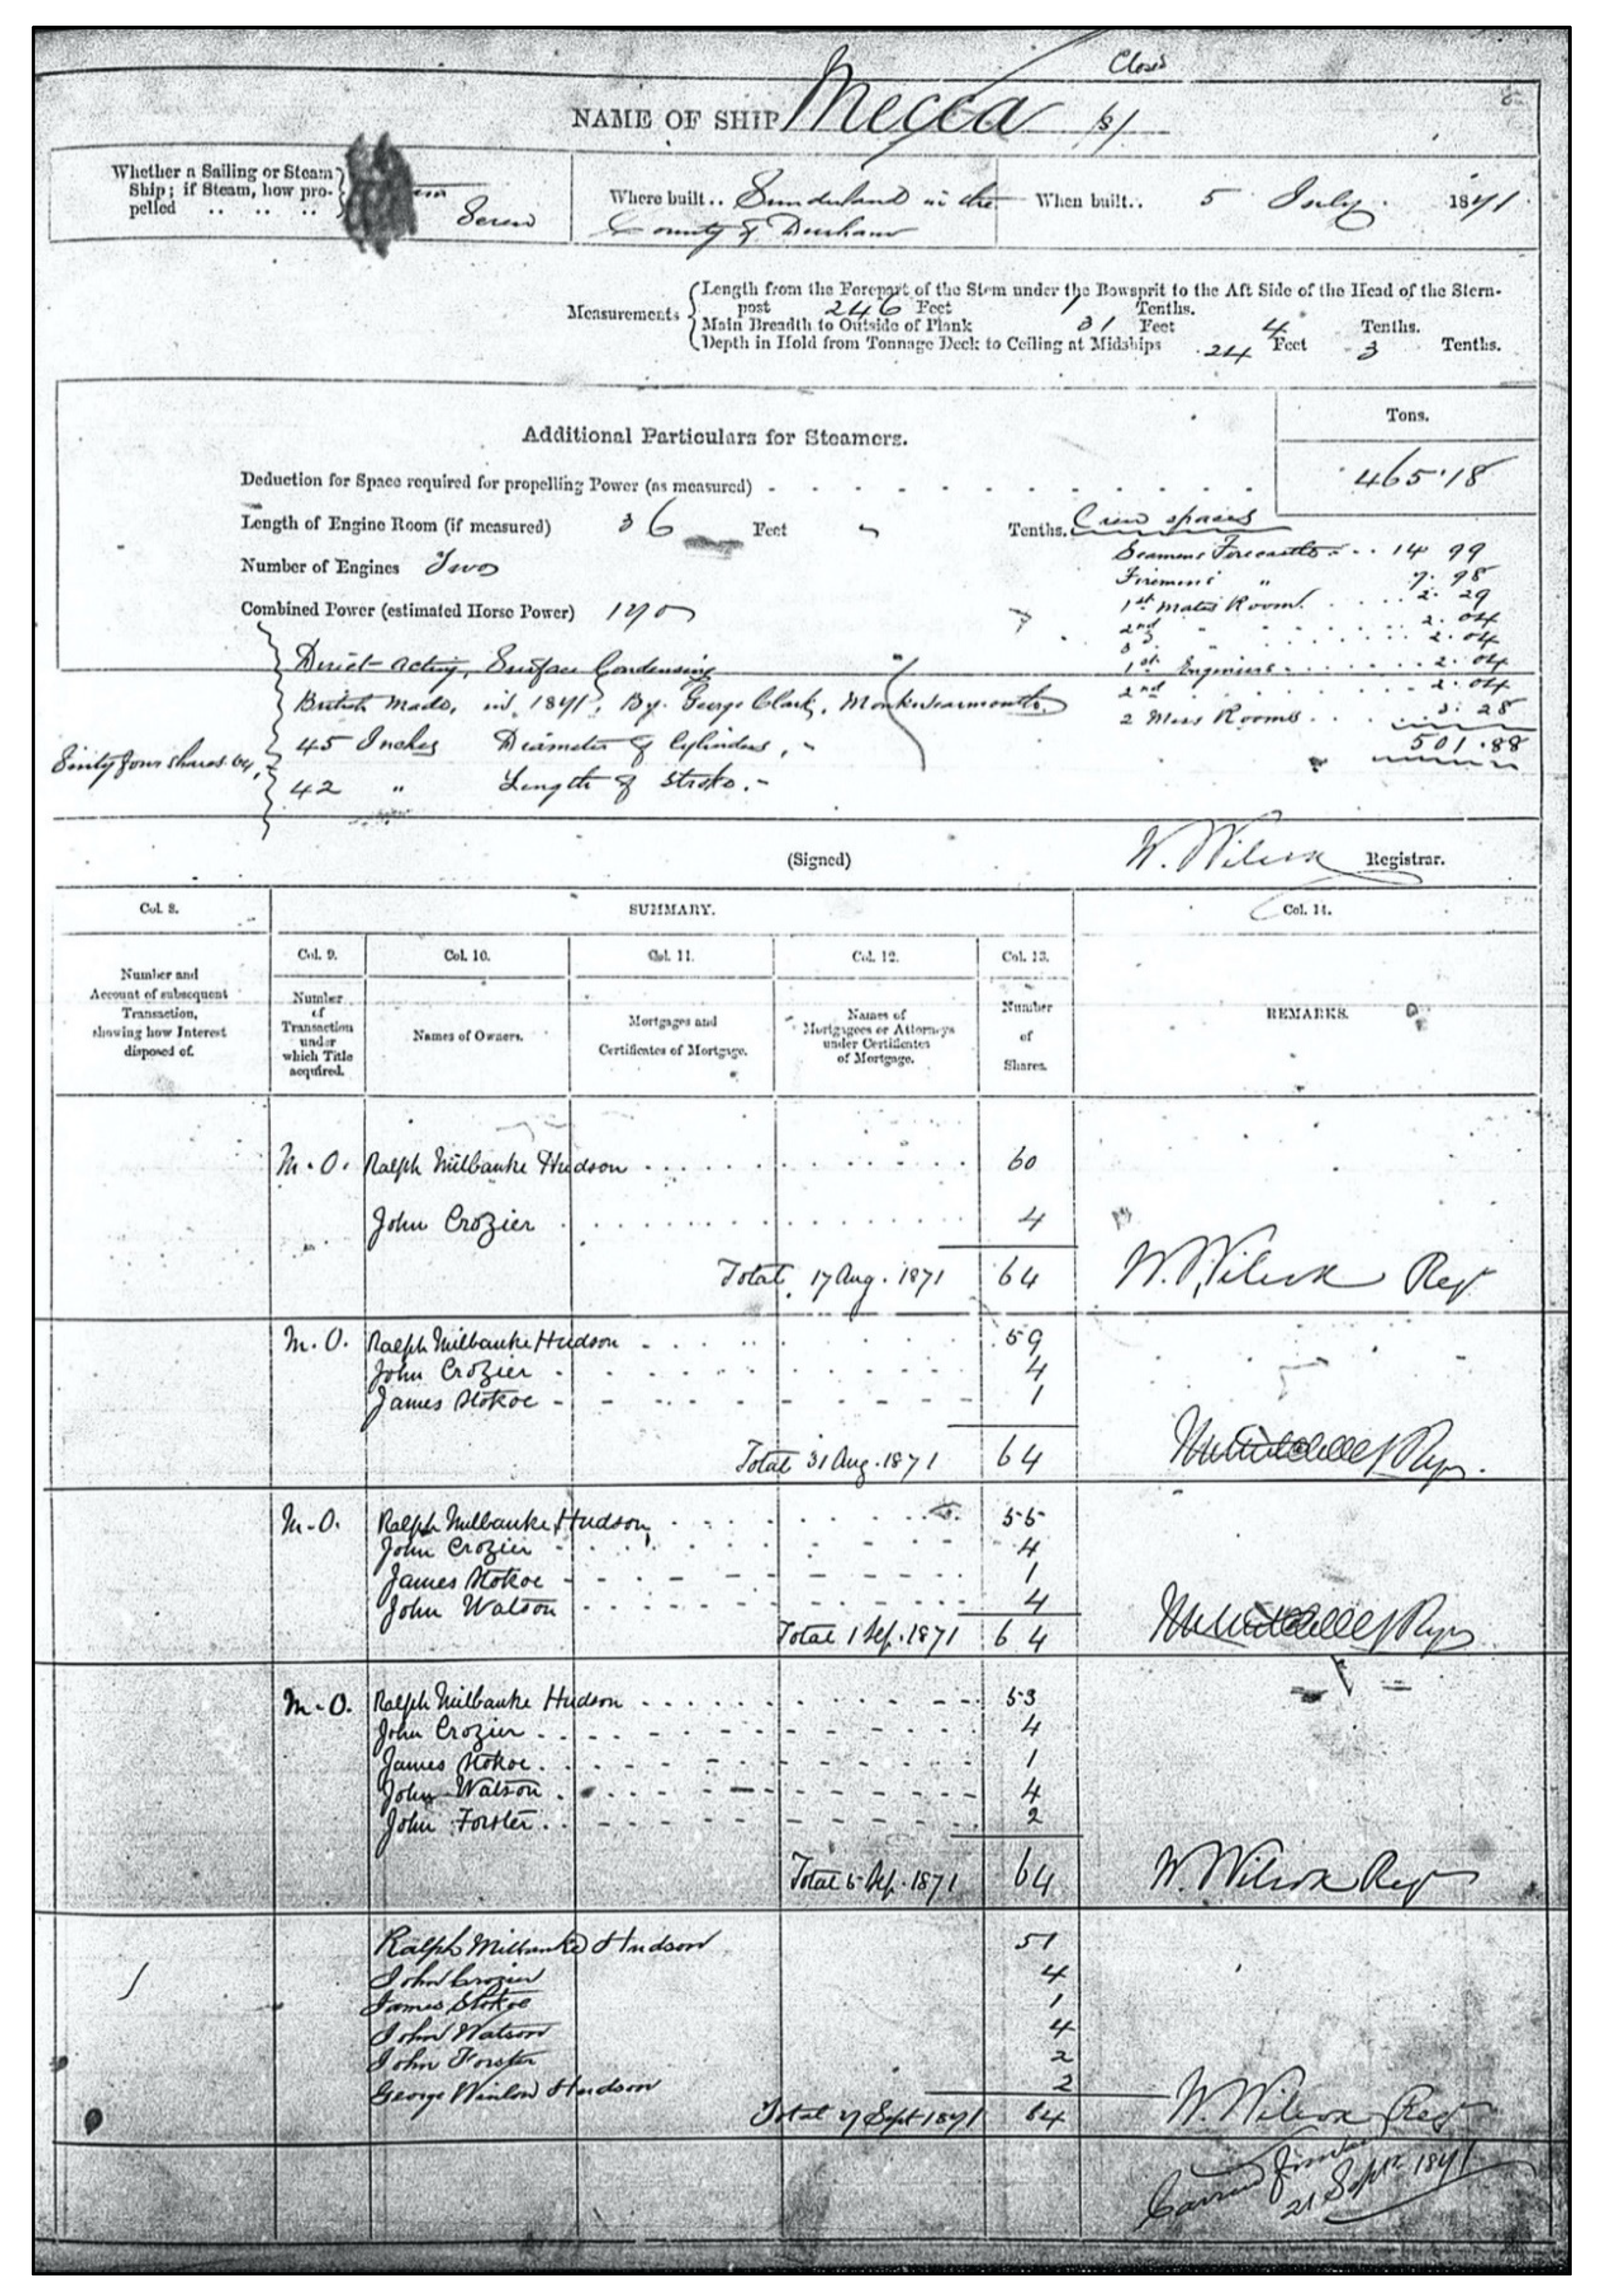 Closed
NAME OF SHIP Mecca (s)
Whether a Sailing or Steam Ship; if Steam, how propelled .. .. .. Screw
Where built .. Sunderland in the County of Durham
When built .. 5 July 1871
Measurements
Length from the Forepart of the Stem under the Bowsprit to the Aft Side of the Head of the Stern-
post 246 Feet 1 Tenths.
Main Breadth to Outside of Plank 31 Feet 4 Tenths.
Depth in Hold from Tonnage Deck to Ceiling at Midships 24 Feet 3 Tenths.
Additional Particulars for Steamers.
Tons.
Deduction for Space required for propelling Power (as measured) 465.18
Length of Engine Room (if measured) 36 Feet Tenths.
Number of Engines Two
Combined Power (estimated Horse Power) 170
Crew spaces
Seamens Forecastle 14 99
Firemens " 7. 98
1st Mates Room 2. 29
2nd " 2. 04
3 " 2. 04
1st Engineers 2. 04
2nd 2. 04
2 Mess Rooms 3. 28
501.88
Direct-acting, Surface Condensing
British Made, in 1871, By George Clark, Monkwearmouth.
45 Inches Diameter of Cylinders,
42 " Length of Stroke.
Sixty four shares 64
(Signed) W. Wilcox Registrar.
Col. 8.
SUMMARY.
Col. 14.
Col. 9. Col. 10. Col. 11. Col. 12. Col. 13.
Number and Account of subsequent Transaction, showing how Interest disposed of.
Number of Transaction under which Title acquired.
Names of Owners.
Mortgages and Certificates of Mortgage.
Names of Mortgagees or Attorneys under Certificates of Mortgage.
Number of Shares.
REMARKS.
M.O. Ralph Milbanke Hudson 60
John Crozier 4
Total 17 Aug. 1871 64 W. Wilcox Regr
M.O. Ralph Milbanke Hudson 59
John Crozier 4
James Stokoe 1
Total 31 Aug. 1871 64
M.O. Ralph Milbanke Hudson 55
John Crozier 4
James Stokoe 1
John Watson 4
Total 1 Sep. 1871 64
M.O. Ralph Milbanke Hudson 53
John Crozier 4
James Stokoe 1
John Watson 4
John Forster 2
Total 5 Sep. 1871 64 W. Wilcox Regr
Ralph Milbanke Hudson 51
John Crozier 4
James Stokoe 1
John Watson 4
John Forster 2
George Winlow Hudson 2
Total 7 Sept 1871 64 W. Wilcox Regr
Carried further
21 Septr 1871